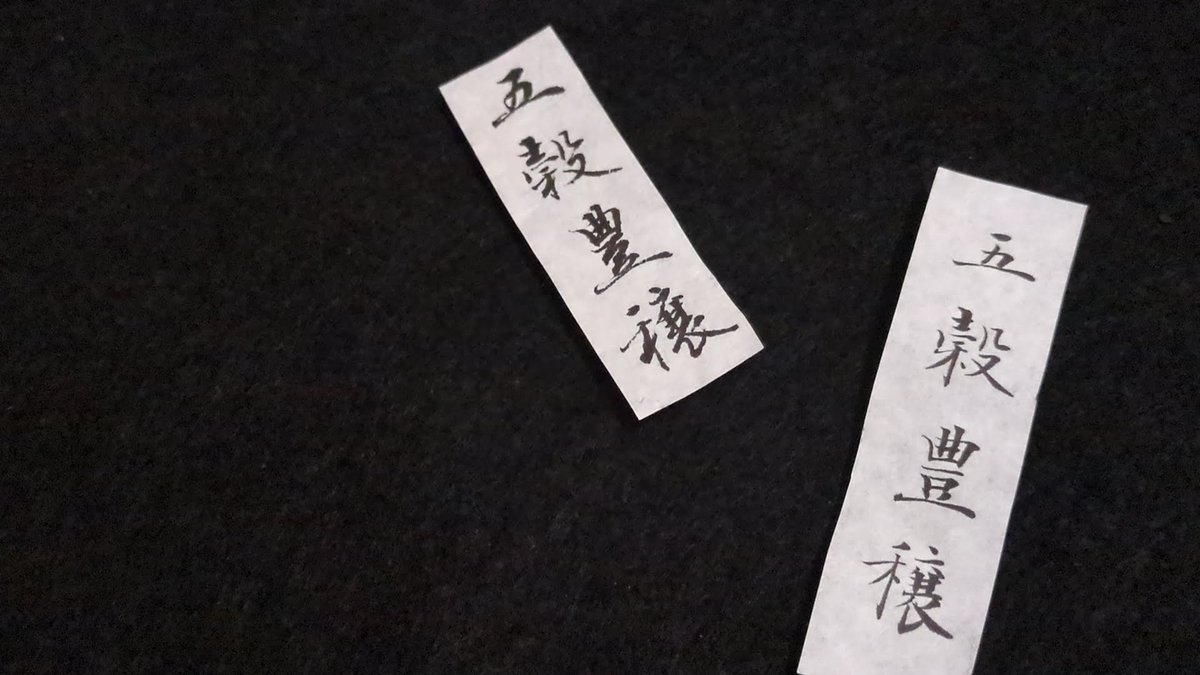 五穀豊穣
五穀豊穣